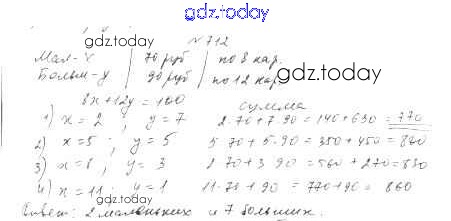 gdz.today
№ 712
Мал-х | 70 руб | по 8 кар.
Больш-у | 90 руб | по 12 кар.
gdz.today
gdz.today
8x+12y = 100
сумма
1) x = 2 ; y = 7 2·70+7·90 = 140+630 = 770
2) x = 5 ; y = 5 5·70+5·90 = 350+450 = 800
3) x = 8 ; y = 3 8·70+3·90 = 560+270 = 830
4) x = 11 ; y = 1 11·70+90 = 770+90 = 860
gdz.today
Ответ: 2 маленьких и 7 больших.
gdz.today